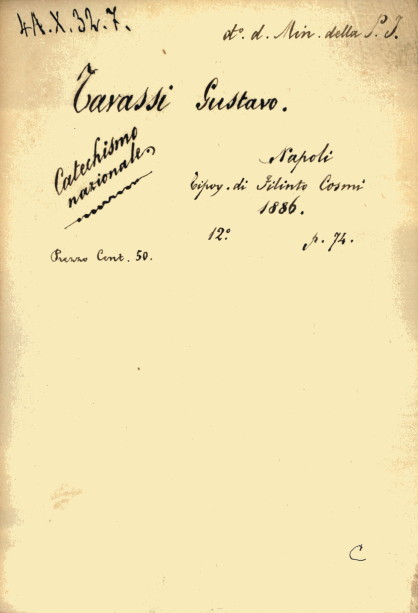 4A.X.32.7.
dº. d. Min. della P. I.
Tavassi Gustavo.
Catechismo
nazionale,
Napoli
Tipog. di Filinto Cosmi
1886.
12º p. 74.
Prezzo Cent. 50.
C